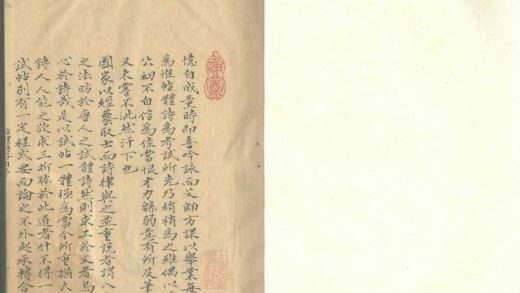 憶自成童時即喜吟詠而父師方課以舉業每
爲惟帖體詩爲考試所先乃稍稍爲之雖偶以
公初不自信爲佳當恨才力綿弱意有所及筆
又未嘗不洸然汗下也
國家以經藝取士而詩律與之並重說者謂八
之法昉於唐人之試體詩然則求工於文者烏
心於詩哉是以試帖一體極爲當今所重操大
詩人人能之欲求三折肱於此道者什不得一
試帖別有一定程式要而論之不外起承轉合